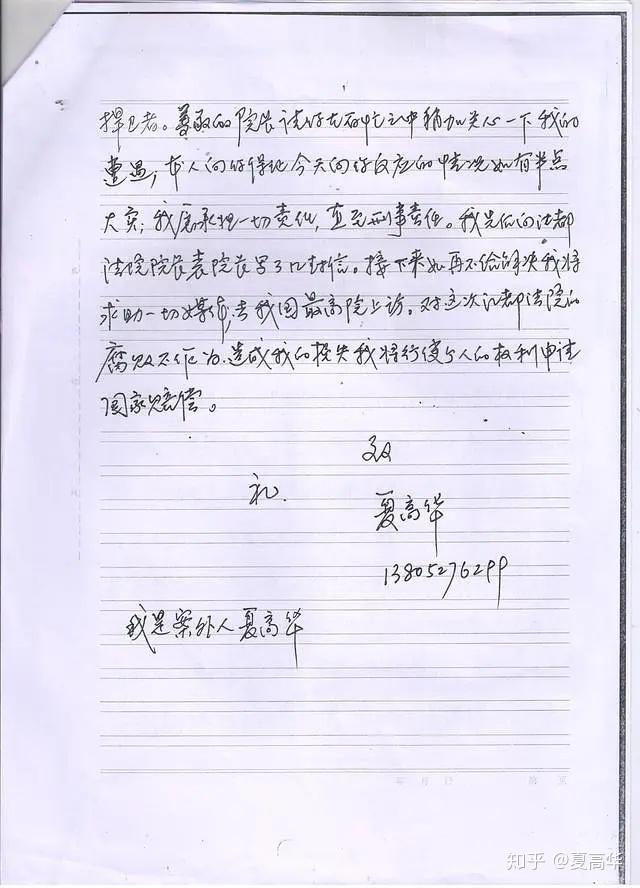 捍卫者。尊敬的院长请你在百忙之中稍加关心一下我的
遭遇，本人向你保证今天向你反应的情况如有半点
失实，我愿承担一切责任，直至刑事责任。我先后向江都
法院院长袁院长写了几封信。接下来如再不给解决我将
求助一切媒体，去我国最高院上访。对这次江都法院的
腐败不作为，造成我的损失我将行使个人的权利申请
国家赔偿。
礼.
夏高华
13805276299
我是案外人夏高华
年 月 日 第 页
知乎 @夏高华